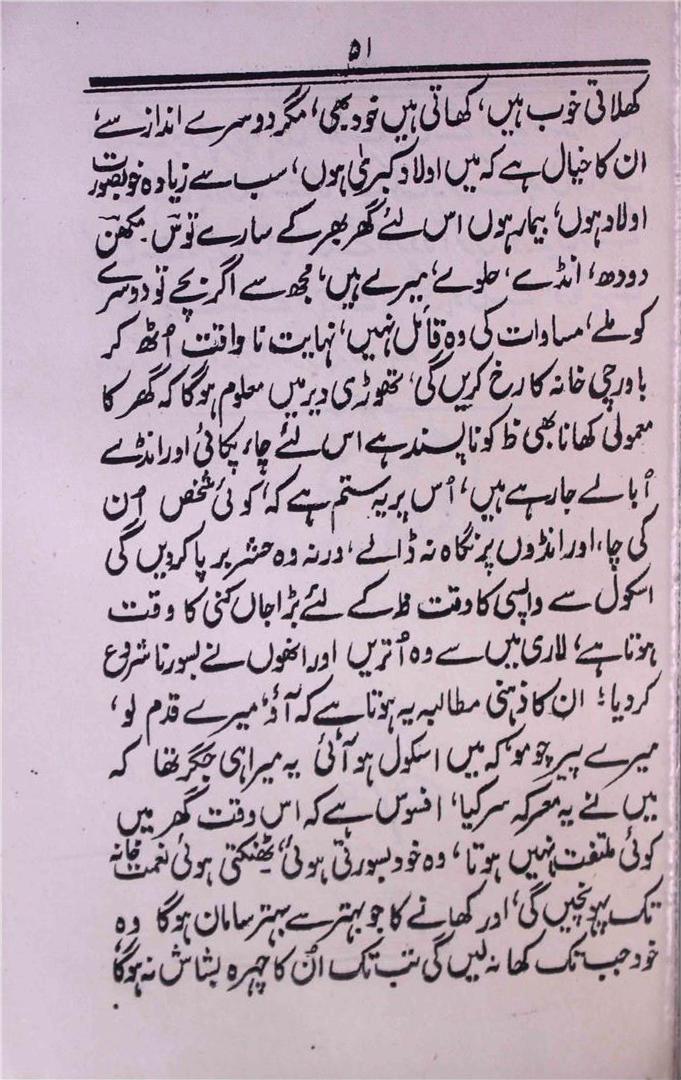 ۵۱
کھلاتی خوب ہیں، کھاتی ہیں خود بھی، مگر دوسرے انداز سے،
ان کا خیال ہے کہ میں اولاد کبریٰ ہوں، سب سے زیادہ خوبصورت
اولاد ہوں، بیمار ہوں اس لئے گھر بھر کے سارے توس۔ مکھن
دودھ، انڈے، حلوے، میرے ہیں، مجھ سے اگر بچے تو دوسرے
کو ملے، مساوات کی وہ قائل نہیں، نہایت نا وقت اُٹھ کر
باورچی خانہ کا رخ کریں گی، تھوڑی دیر میں معلوم ہوگا کہ گھر کا
معمولی کھانا بھی ظ کو ناپسند ہے اس لئے چاء پکائی اور انڈے
اُبالے جا رہے ہیں، اُس پر یہ ستم ہے کہ، کوئی شخص اُن
کی چاء اور انڈوں پر نگاہ نہ ڈالے، ورنہ وہ حشر برپا کردیں گی
اسکول سے واپسی کا وقت ظ کے لئے بڑا جاں کنی کا وقت
ہوتا ہے، لاری میں سے وہ اُتریں اور انھوں نے بسورنا شروع
کر دیا؛ ان کا ذہنی مطالبہ یہ ہوتا ہے کہ آؤ، میرے قدم لو،
میرے پیر چومو، کہ میں اسکول ہو آئی یہ میرا ہی جگر تھا کہ
میں نے یہ معرکہ سر کیا، افسوس ہے کہ اس وقت گھر میں
کوئی ملتفت نہیں ہوتا، وہ خود بسورتی ہوئی، پھنکتی ہوئی نعمت خانہ
تک پہونچیں گی، اور کھانے کا جو بہتر سے بہتر سامان ہوگا وہ
خود جب تک کھا نہ لیں گی تب تک اُن کا چہرہ بشاش نہ ہوگا،